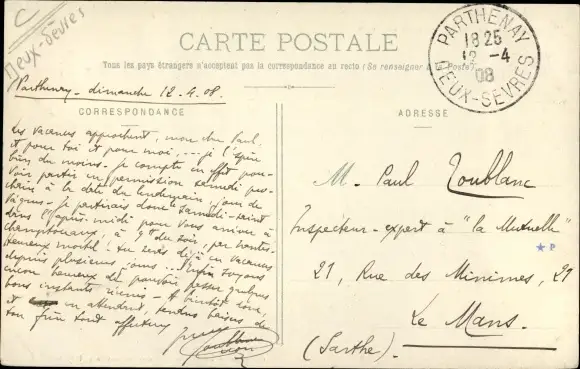 C
Deux-Sèvres
CARTE POSTALE
Tous les pays étrangers n'acceptent pas la correspondance au recto (Se renseigner à la Poste).
PARTHENAY
18 25
12 -4
08
DEUX-SEVRES
Parthenay - dimanche 12-4-08.
CORRESPONDANCE
Les vacances approchent, mon cher Paul,
et pour toi et pour moi, ... je l'espère
bien du moins. Je compte en effet pou-
voir partir en permission samedi pro-
chain à la date du lendemain, jour de
Pâques. Je partirais donc samedi-saint
dans l'après-midi pour vous arriver à
Champtonnay, à du soir, par
! tu seras déjà en vacances
depuis plusieurs jours... Enfin soyons
encore heureux de pouvoir passer quelques
bons instants réunis - A bientôt donc,
et en attendant, tendres baisers de
ton frère tout affectueux
ADRESSE
M. Paul Toublanc
Inspecteur-expert à "la Mutuelle"
P
21, Rue des Minimes, 21
Le Mans.
(Sarthe).